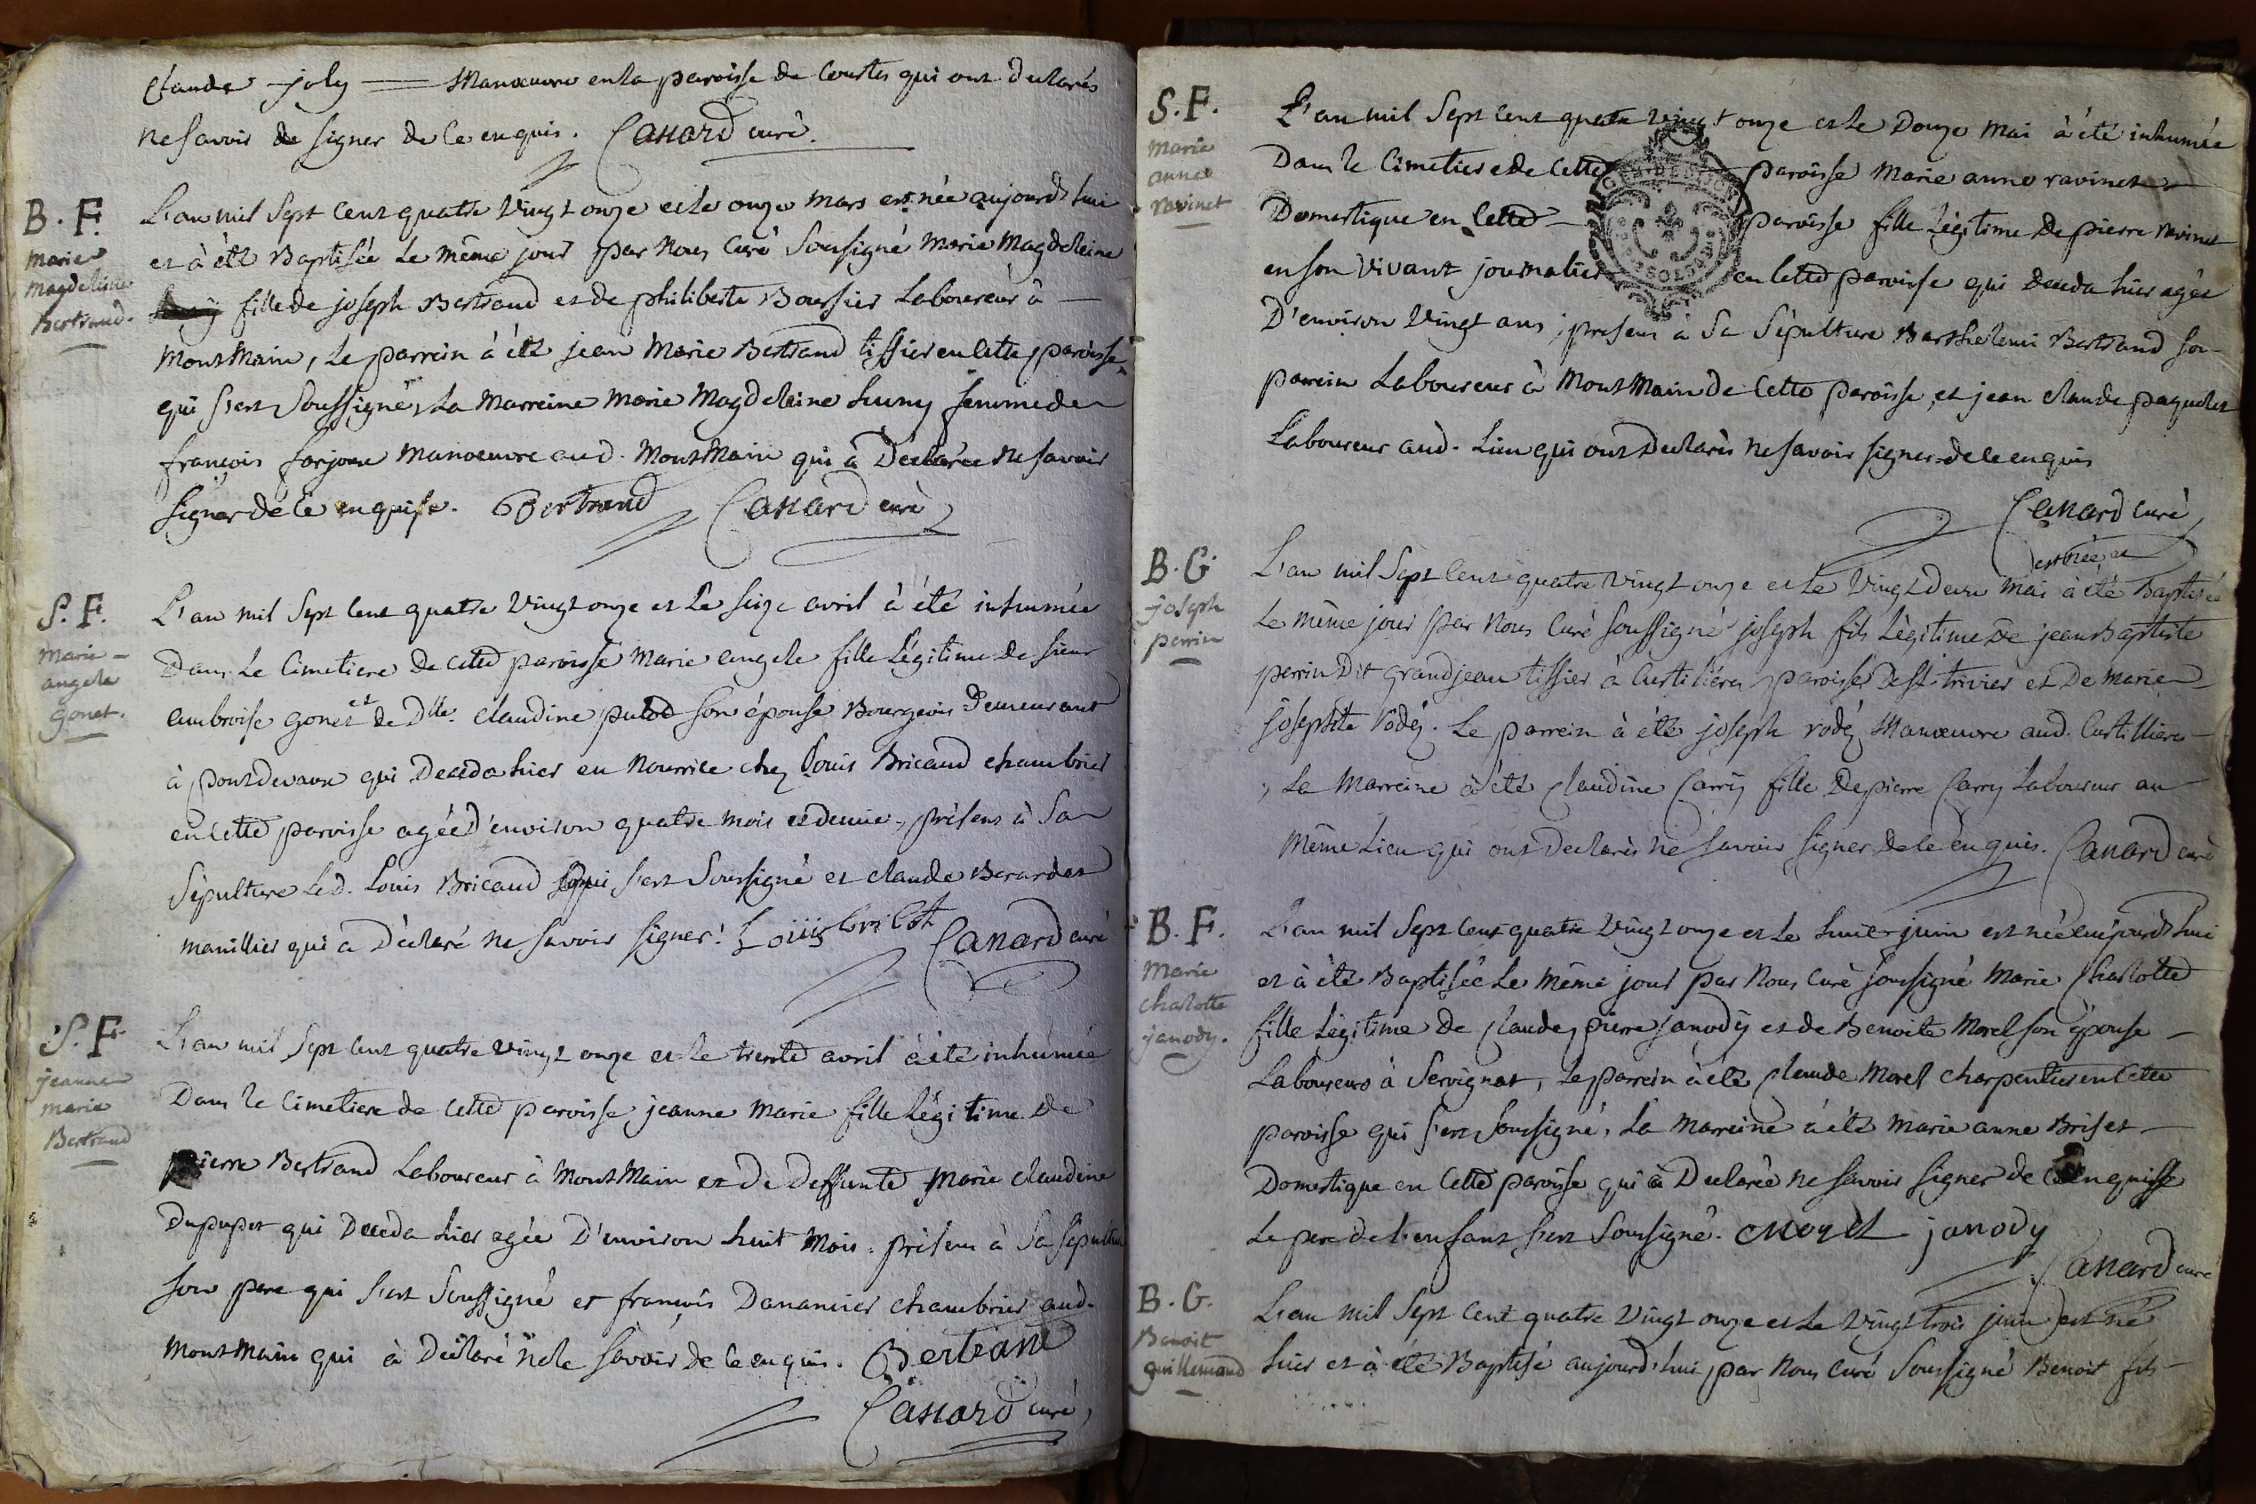 Claude joly == Manoeuvre en la paroisse de Courtes qui ont declarés
ne savoir de signer de ce enquis. Canard curé.
B. F.
marie
magdeleine
Bertrand.
L'an mil sept cent quatre vingt onze et le onze mars est née aujourd'hui
et à été Baptisée le même jour par nous Curé soussigné Marie Magdeleine
fille de joseph Bertrand et de philiberte Boursier Laboureur à
MontMain, le parrein à été jean Marie Bertrand tissier en cette paroisse
qui s'est soussigné, la marreine marie Magdeleine huny femme de
françois forjon manoeuvre aud. MontMain qui à Déclarée ne savoir
signer de ce enquise. Bertrand Canard curé
S. F.
marie
angele
gonet.
L'an mil sept cent quatre vingt onze et le seize avril à été inhumée
Dans le Cimetiere de cette paroisse marie angele fille légitime de sieur
ambroise gonet et de Dlle. claudine son épouse Bourgeois demeurant
à pontdevaux qui deceda hier en nourrice chez Louis Bricaud chambrier
en cette paroisse agée d'environ quatre mois et demie, présens à sa
sépulture led. Louis Bricaud qui s'est soussigné et claude Berardet
manillier qui a Déclaré ne savoir signer. Loüis Canard curé
S. F.
jeanne
marie
Bertrand
L'an mil sept cent quatre vingt onze et le trente avril à été inhumée
Dans le Cimetiere de cette paroisse jeanne marie fille légitime de
pierre Bertrand Laboureur à MontMain et de deffunte marie claudine
Dupupet qui deceda hier agée d'environ huit mois. présens à sa sépulture
son pere qui s'est soussigné et françois Danancier chambrier aud.
MontMain qui à Déclaré ne le savoir de ce enquis. Bertrand
Canard curé,
S. F.
marie
anne
ravinet
L'an mil sept cent quatre vingt onze et le Douze mai à été inhumée
Dans le Cimetiere de cette paroisse Marie anne ravinet
Domestique en cette paroisse fille légitime de pierre ravinet
en son vivant journalier en cette paroisse qui deceda hier agée
D'environ vingt ans, presens à sa sépulture Barthelemi Bertrand son
parrein Laboureur à MontMain de cette paroisse, et jean claude paquelet
Laboureur aud. lieu qui ont declarés ne savoir signer de ce enquis
Canard curé,
B. G.
joseph
perrin
est née et
L'an mil sept cent quatre vingt onze et le vingt deux mai à été Baptisé
le même jour par nous Curé soussigné joseph fils légitime de jean Baptiste
perrin dit grandjean tissier à Curtilières paroisse de St. trivier et de marie
josephte rodéz. Le parrein à été joseph rodéz Manoeuvre aud. Curtillieres
, la Marreine à été Claudine Carry fille de pierre Carry Laboureur au
même lieu qui ont declarés ne savoir signer de ce enquis. Canard curé
B. F.
Marie
charlotte
janody.
L'an mil sept cent quatre vingt onze et le huit juin est née aujourd'hui
et à été Baptisée le même jour par nous Curé soussigné Marie Charlotte
fille légitime de Claude pierre janody et de Benoite Morel son épouse
Laboureurs à Servignat, le parrein à été Claude Morel charpentier en cette
paroisse qui s'est soussigné, la marreine à été marie anne Briset
Domestique en cette paroisse qui à Declarée ne savoir signer de ce enquisse
Le pere de l'enfant s'est soussigné. Morel janody
Canard curé
B. G.
Benoit
guillemaud
L'an mil sept cent quatre vingt onze et le vingt trois juin est né
hier et à été Baptisé aujourd'hui par nous Curé soussigné Benoit fils